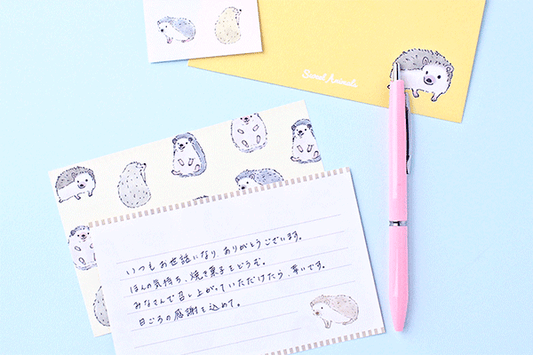 Sweet Animals
いつもお世話になり、ありがとうございます。
ほんの気持ち、焼き菓子をどうぞ。
みなさんで召し上がっていただけたら、幸いです。
日ごろの感謝を込めて。